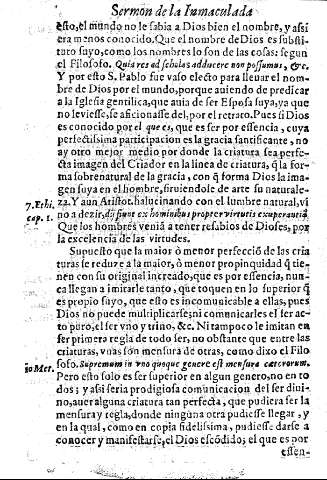 Sermon de la Inmaculada
esto, el mundo no le sabia a Dios bien el nombre, y assi
era menos conocido. Que el nombre de Dios es substi-
tuto suyo, como los nombres lo son de las cosas: segun
el Filosofo. Quia res ad scholas adducere non possumus, &c.
Y por esto S. Pablo fue vaso electo para lleuar el nom-
bre de Dios por el mundo, porque auiendo de predicar
a la Iglesia gentilica, que auia de ser Esposa suya, ya que
no leviesse, se aficionasse del, por el retrato. Pues si Dios
es conocido por el que es, que es ser por essencia, cuya
perfectissima participacion es la gracia santificante, no
ay otro mejor medio por donde la criatura sea perfe-
cta imagen del Criador en la linea de criatura, q̃ la for-
ma sobrenatural de la gracia, con q̃ forma Dios la ima-
gen suya en el hombre, siruiendole de arte su naturale-
7. Ethi. cap. 1.
za. Y aun Aristot. halucinando con el lumbre natural, vi
no a dezir, dij fiunt ex hominibus propter virtutis exuperantiã.
Que los hombres veniã a tener resabios de Dioses, por
la excelencia de las virtudes.
Supuesto que la maior ò menor perfecciõ de las cria
turas se reduze a la maior, ò menor propinquidad q̃ tie-
nen con su original increado, que es por essencia, nun-
ca llegan a imitarle tanto, que toquen en lo superior q̃
es propio suyo, que esto es incomunicable a ellas, pues
Dios no puede multiplicarse; ni comunicarles el ser act-
to puro, el ser vno y trino, &c. Ni tampoco le imitan en
ser primera regla de todo ser, no obstante que entre las
criaturas, vnas son mensura de otras, como dixo el Filo
10 Met.
sofo. Supremum in vno quoque genere est mensura cæterorum.
Pero esto solo es ser superior en algun genero, no en to
dos; y assi seria prodigiosa comunicacion del ser diui-
no, auer alguna criatura tan perfecta, que pudiera ser la
mensura y regla, donde ninguna otra pudiesse llegar, y
en la qual, como en copia fidelissima, pudiesse darse a
conocer y manifestarse, el Dios escõdido; el que es por
essen-